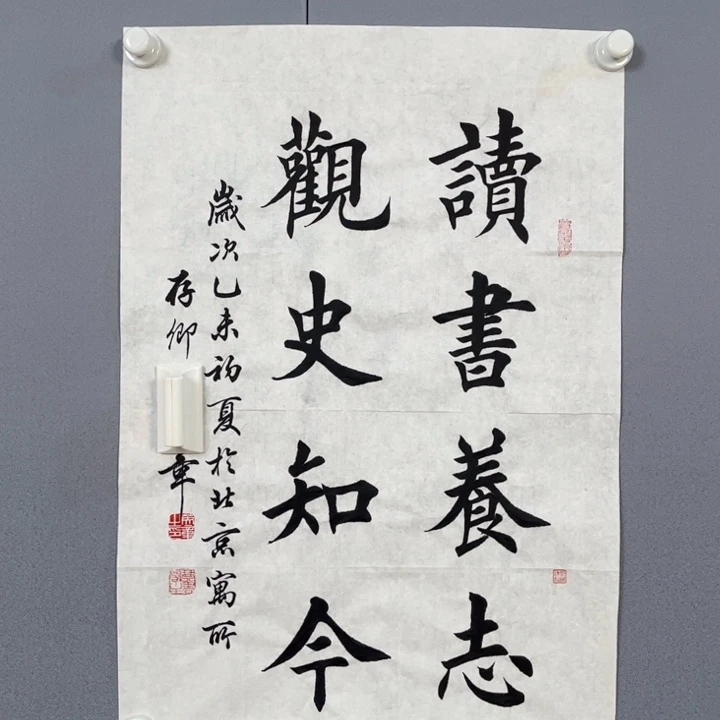 讀書養志
觀史知今
歲次乙未初夏於北京寓所
存卿